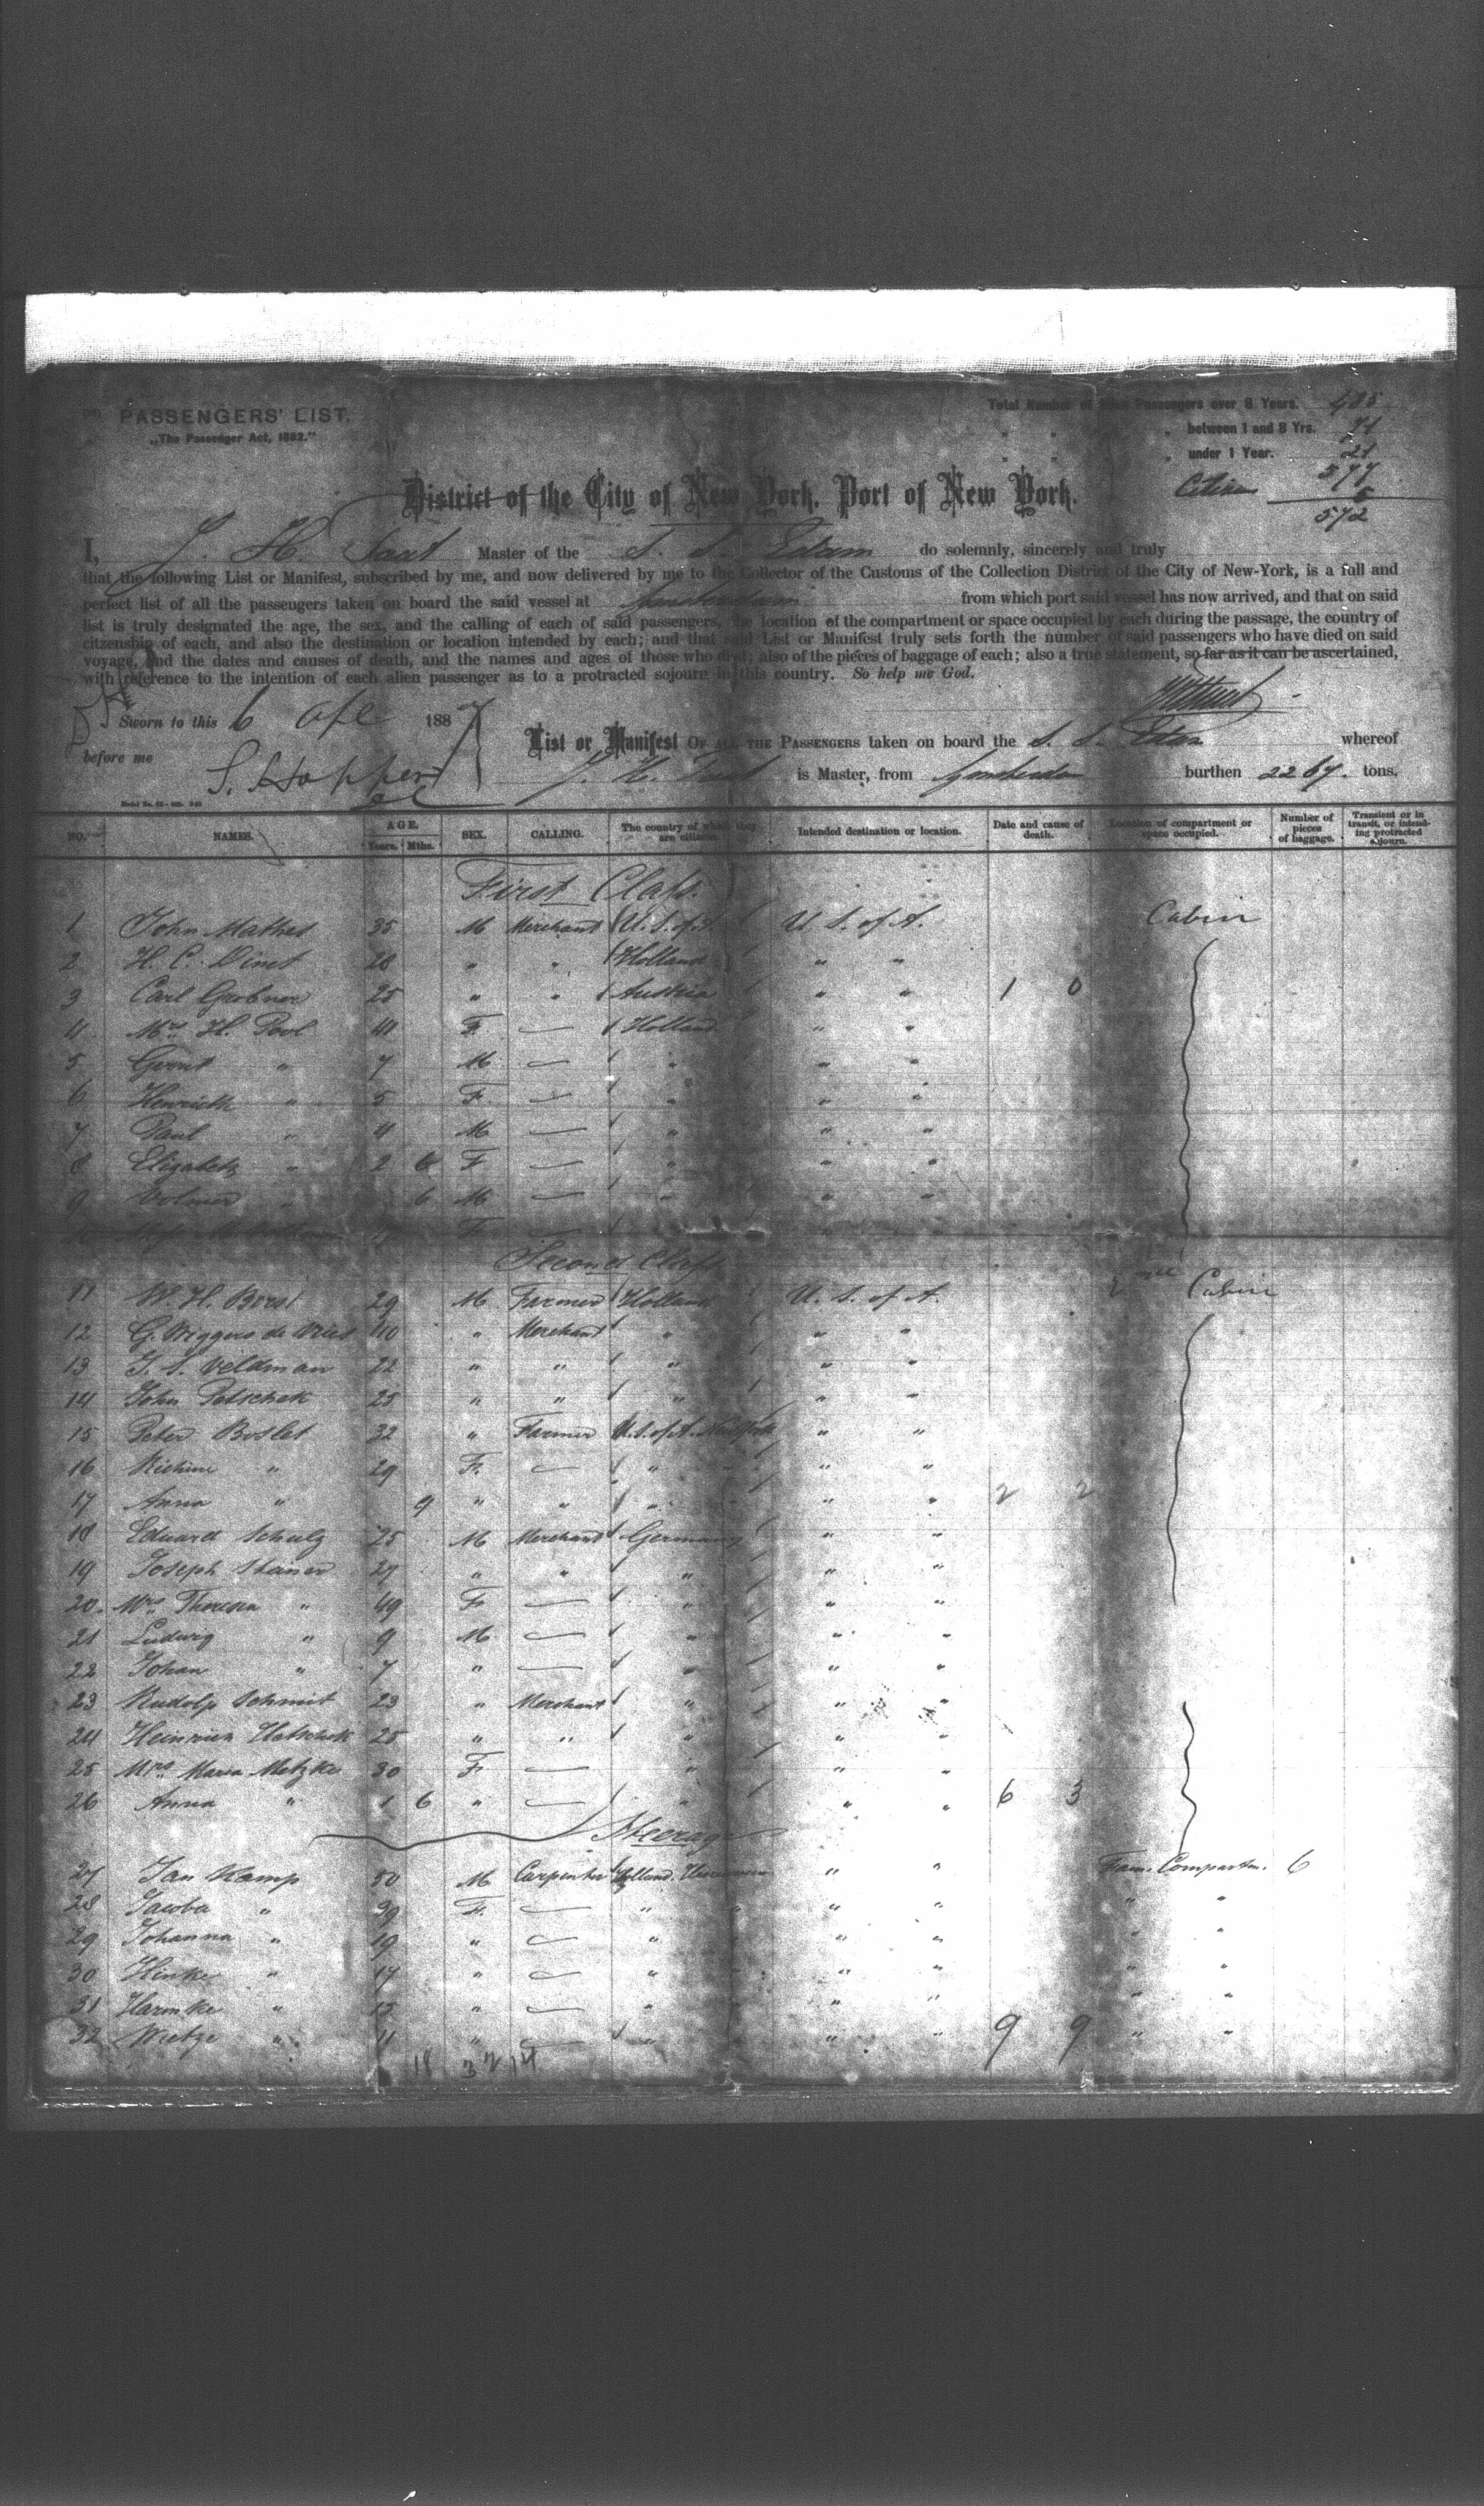 PASSENGERS' LIST.
„The Passenger Act, 1882."
Total Number of Passengers over 8 Years. 485
" " " between 1 and 8 Yrs. 71
" " " under 1 Year. 21
577
5
572
District of the City of New York, Port of New York.
I, J. H. Taat Master of the S. S. Edam do solemnly, sincerely and truly
that the following List or Manifest, subscribed by me, and now delivered by me to the Collector of the Customs of the Collection District of the City of New-York, is a full and
perfect list of all the passengers taken on board the said vessel at Amsterdam from which port said vessel has now arrived, and that on said
list is truly designated the age, the sex, and the calling of each of said passengers, the location of the compartment or space occupied by each during the passage, the country of
citzenship of each, and also the destination or location intended by each; and that said List or Manifest truly sets forth the number of said passengers who have died on said
voyage, and the dates and causes of death, and the names and ages of those who died; also of the pieces of baggage of each; also a true statement, so far as it can be ascertained,
with reference to the intention of each alien passenger as to a protracted sojourn in this country. So help me God.
Sworn to this 6 Apl 1887
before me S. Hopper
List or Manifest OF ALL THE PASSENGERS taken on board the S. S. Edam whereof
J. H. Taat is Master, from Amsterdam burthen 2267. tons.
NO. NAMES. AGE. Years. Mths. SEX. CALLING. The country of which they are citizens. Intended destination or location. Date and cause of death. Location of compartment or space occupied. Number of pieces of baggage. Transient or in transit, or intending protracted sojourn.
First Class.
1 John Mathes 35 M Merchant U. S. of A. U. S. of A. Cabin
2 H. C. Dinet 28 " " Holland " "
3 Carl Grobner 25 " " Austria " " 1 0
4 Mrs H. Pool 41 F. — Holland " "
5 " 7 M — " " "
6 " 5 F. — " " "
7 Paul " 4 M — " " "
8 Elizabeth " 2 6 F — " " "
9 " 6 M — " " "
F —
Second Class
11 W. H. Borst 29 M Farmer Holland U. S. of A. Cabin
12 G. Wiggers de Vries 40 " Merchant " " "
13 J. S. Veldman 22 " " " " "
14 John Petschek 25 " " " " "
15 Peter Boslet 32 " Farmer U. S. of A. New York " "
16 " 29 F. — " " " "
17 Anna " 9 " " " " " 2 2
18 Eduard Schulz 25 M Merchant Germany " "
19 Joseph Steiner 27 " " " " "
20. Mrs Theresia " 49 F — " " "
21 Ludwig " 9 M — " " "
22 Johan " 7 " — " " "
23 Rudolp Schmit 23 " Merchant " " "
24 Heinrich Hatschek 25 " " " " "
25 Mrs Maria Metzke 30 F — " "
26 Anna " 1 6 " — " " " 6 3
Steerage
27 Jan Kamp 50 M Carpenter Holland. " " Fam. Compartm. 6
28 Jacoba " 39 F. — " " " " " "
29 Johanna " 19 " — " " " " "
30 Hinke " 17 " — " " " " " "
31 Harmke " 12 " — " " " " " "
32 Wietze " 11 " — " " " " 9 9 " "
18 32 14